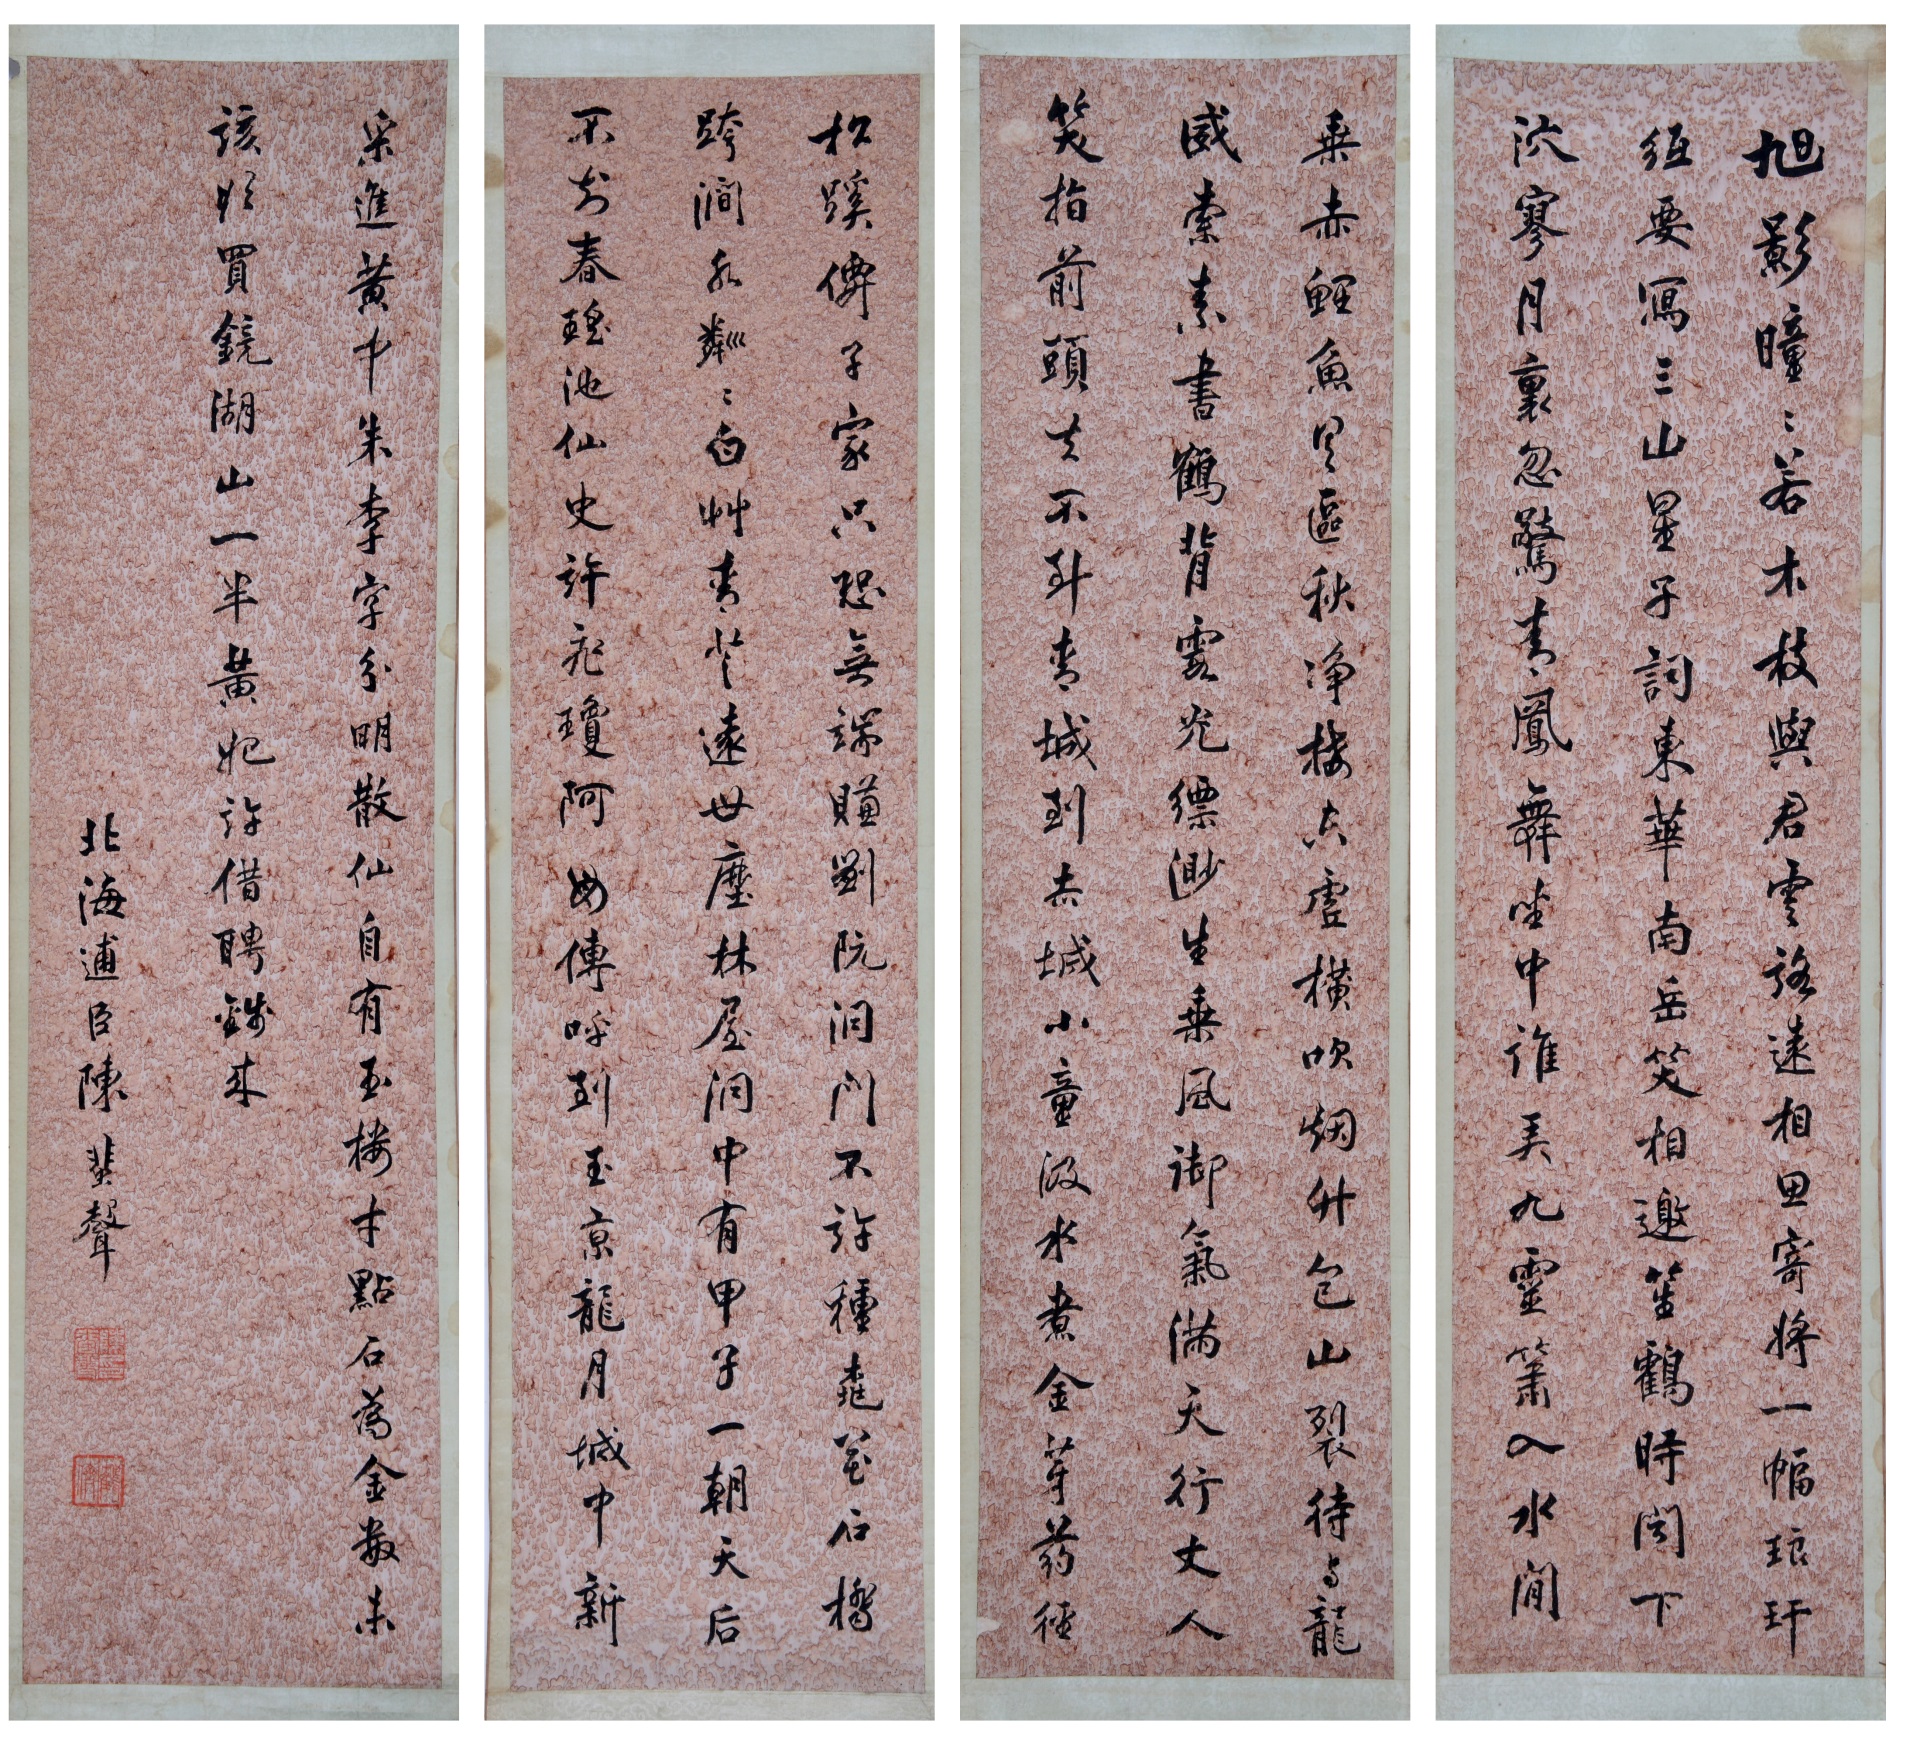 旭影曈〻若木枝與君雲路遠相思寄將一幅琅玕
紙要寫三山星子詞東華南岳笑相邀笙鶴時聞下
泬寥月裏忽驚青鳳舞坐中誰弄九靈簫入水閒
乘赤鯉魚具區秋淨橫吹烟升包山裂待與龍
威索素書鶴背雲光縹渺生乘風御氣滿天行丈人
笑指前頭去不到青城到赤城小童汲水煮金芽药徑
松蹊僊子家只恐無端賺劉阮洞門不許種桃花石橋
跨澗水粼〻白艸青芝遠世塵林屋洞中有甲子一朝天后
不知春瑤池仙史許飛瓊阿母傳呼到玉京龍月城中新
果進黃中朱李字分明散仙自有玉樓才點石為金數未
該欲買鏡湖山一半黃妃許借聘錢來
北海逋臣陳蜚聲